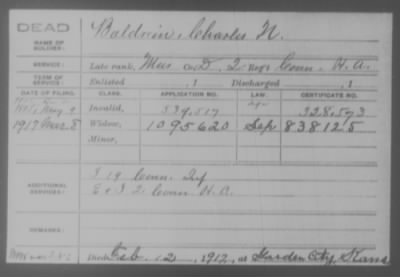 DEAD
NAME OF SOLDIER: Baldwin, Charles N.
SERVICE: Late rank, Mus Co. D, 2 Reg't Conn. H.A.
TERM OF SERVICE: Enlisted , 1 Discharged , 1
DATE OF FILING. CLASS. APPLICATION NO. LAW. CERTIFICATE NO.
Invalid, 539.517 328.573
1917 Mar 8 Widow, 1095620 Sep 838125
Minor,
ADDITIONAL SERVICES: I 19 Conn. Inf
E & I 2 Conn H.A.
REMARKS:
Died Feb. 2, 1912, at Garden City, Kans